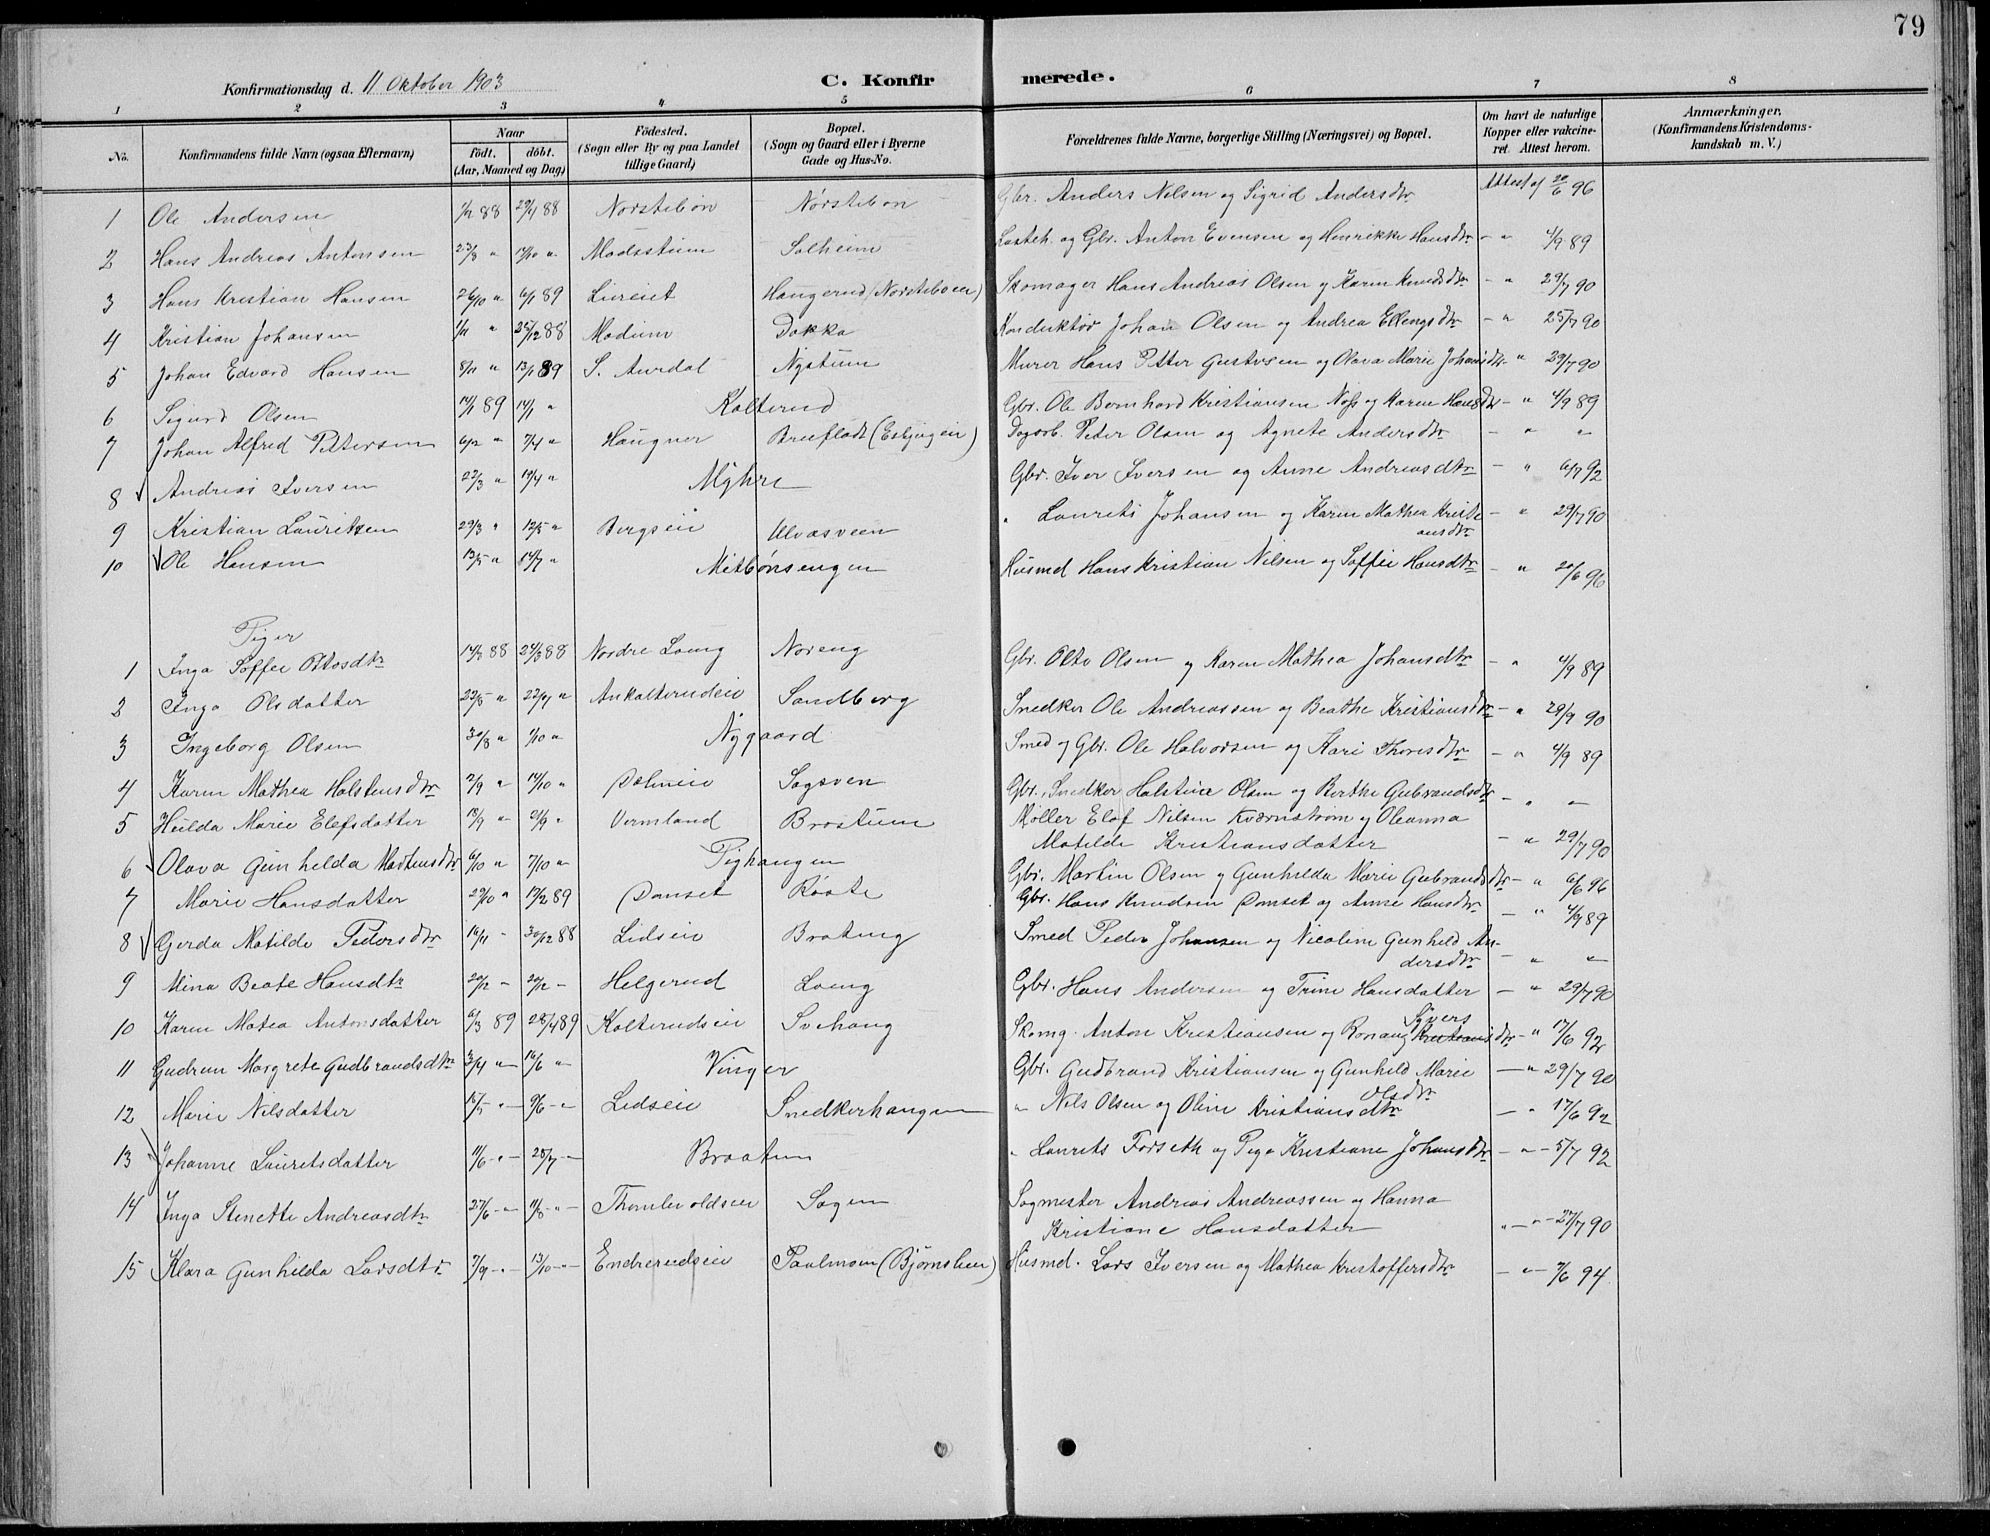 79
Konfirmationsdag d. 11 Oktober 1903
C. Konfirmerede.
1 2 3 4 5 6 7 8
No. Konfirmandens fulde Navn (ogsaa Efternavn) Naar födt. döbt. (Aar, Maaned og Dag) Födested. (Sogn eller By og paa Landet tillige Gaard) Bopæl. (Sogn og Gaard eller i Byerne Gade og Hus-No. Forældrenes fulde Navne, borgerlige Stilling (Næringsvei) og Bopæl. Om havt de naturlige Kopper eller vakcineret. Attest herom. Anmærkninger. (Konfirmandens Kristendomskundskab m. V.)
1 Ole Andersen 88 29/4 88 Norstebön Nørstebøn Gbr. Anders Nilsen og Sigrid Andersdtr Attest af 20/6 96
2 Hans Andreas Antonsen 23/3 " 14/10 " Modestuen Solheim og Gbr. Anton Evensen og Henrikke Hansdtr - " 4/9 89
3 Hans Kristian Hansen 26/10 " 6/1 89 Liereiet Haugerud (Nørsteboeie) Skomager Hans Andreas Olsen og Karen Knudsdtr - " 29/7 90
4 Kristian Johansen 1/11 " 25/12 88 Modum Dokka Konduktør Johan Olsen og Andrea Ellingsdtr - " 25/7 90
5 Johan Edvard Hansen 8/11 " 13/1 89 S. Aurdal Nystuen Murer Hans Petter Gustvsen og Olava Marie Johansdtr - " 29/7 90
6 Sigurd Olsen 14/1 89 14/1 " Kolterud Gbr. Ole Bernhard Kristiansen Noss og Karen Hansdtr - " 4/9 89
7 Johan Alfred Pettersen 6/2 " 7/4 " Haugner Breiflödt (Esbjugeie) Dagarb. Peter Olsen og Agnete Andersdtr - " "
8 Andreas Iversen 22/3 " 19/4 " Myhre Gbr. Iver Iversen og Anne Andreasdtr - " 6/7 92
9 Kristian Lauritzen 29/3 " 12/5 " Bergseie Ulvasveen " Laurits Johansen og Karen Mathea Kristiansdtr - " 29/7 90
10 Ole Hansen 13/5 " 14/7 " Mitbönsengen Husmd Hans Kristian Nilsen og Soffie Hansdtr - " 20/6 96
Piger
1 Inga Soffie Ottosdtr 14/3 88 29/3 88 Nordre Loeng Noreng Gbr. Otto Olsen og Karen Mathea Johansdtr - " 4/9 89
2 Inga Olsdatter 23/5 " 22/7 " Ankolterudeie Sandberg Snedker Ole Andreassen og Beathe Kristiansdtr - " 29/9 90
3 Ingeborg Olsen 30/8 " 7/10 " Nygaard Smed og Gbr. Ole Halvorsen og Kari Thoresdtr - " 4/9 89
4 Karen Mathea Holstensdtr 2/9 " 14/10 " Dolmeie Sagsven Gbr. Snedker Holstine Olsen og Berthe Gubrandsdtr - " -
5 Hulda Marie Elefsdatter 13/9 " 21/9 " Vermland Brostuen Møller Elof Nilsen Kværnstrøm og Oleanna
Matilde Kristiansdatter - " 29/7 90
6 Olava Gunhilda Martinsdtr 6/10 " 7/10 " Pighaugen Gbr. Martin Olsen og Gunhilda Marie Gubrandsdtr - " 6/6 96
7 Marie Hansdatter 29/10 " 17/2 89 Domset Røste Gbr. Hans Knudsen Domset og Anne Hansdtr - " 4/9 89
8 Gerda Matilde Pedersdtr 14/11 - 30/12 88 Lidseie Brateng Smed Peder Johansen og Nicoline Gunhild Andersdtr - " "
9 Mina Beate Hansdtr 20/12 - 20/12 - Helgerud Loeng Gbr. Hans Andersen og Trine Hansdatter - " 29/7 90
10 Karen Matea Antonsdatter 6/3 89 28/4 89 Kolterudseie Svehaug Skomg. Anton Kristiansen og Ronaug Sivers Kristiansdtr - " 17/6 92
11 Gudrun Margrete Gudbrandsdtr 3/4 " 16/6 " Vinger Gbr. Gudbrand Kristiansen og Gunhild Marie Olsdtr - " 29/7 90
12 Marie Nilsdatter 15/5 " 9/6 " Lidseie Snedkerhaugen " Nils Olsen og Oline Kristiansdtr - " 17/6 92
13 Johanne Lauritsdatter 11/6 - " - 28/7 - Braaten " Laurits Forseth og Pega Kristiane Johansdtr - " - 5/7 92
14 Inga Stenette Andreasdtr 27/6 - " 11/8 - " - Thomlevoldseie Sagen Sagmester Andreas Andreassen og Hanna
Kristiane Hansdatter " - " - 29/7 90
15 Klara Gunhilda Larsdtr 7/9 - " - 13/10 - " - Endrerudseie Paalmoen (Bjørnslieie) Husmd. Lars Iversen og Mathea Kristoffersdtr - " - 7/6 94